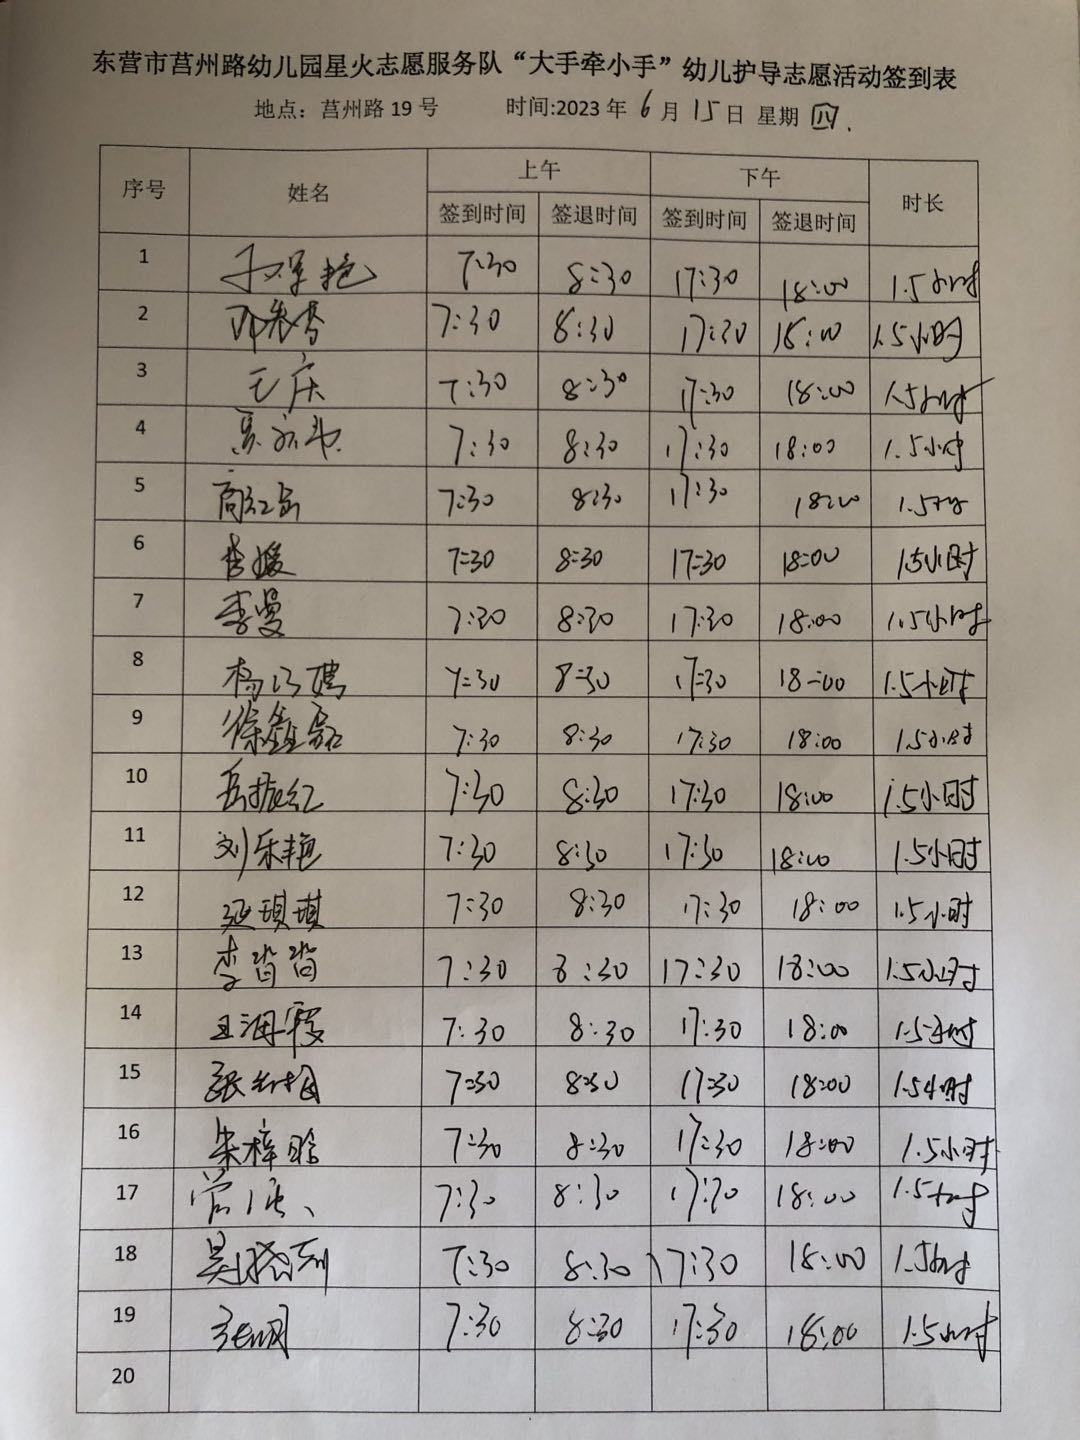 东营市莒州路幼儿园星火志愿服务队“大手牵小手”幼儿护导志愿活动签到表
地点：莒州路19号 时间:2023年6月15日 星期四.
序号 姓名 上午 下午 时长
签到时间 签退时间 签到时间 签退时间
1 7:30 8:30 17:30 18:00 1.5小时
2 7:30 8:30 17:30 18:00 1.5小时
3 王庆 7:30 8:30 17:30 18:00 1.5小时
4 7:30 8:30 17:30 18:00 1.5小时
5 7:30 8:30 17:30 18:00 1.5小时
6 李媛 7:30 8:30 17:30 18:00 1.5小时
7 李曼 7:30 8:30 17:30 18:00 1.5小时
8 7:30 8:30 17:30 18:00 1.5小时
9 徐鑫磊 7:30 8:30 17:30 18:00 1.5小时
10 岳振红 7:30 8:30 17:30 18:00 1.5小时
11 刘乐艳 7:30 8:30 17:30 18:00 1.5小时
12 延琪琪 7:30 8:30 17:30 18:00 1.5小时
13 李皆皆 7:30 8:30 17:30 18:00 1.5小时
14 王海霞 7:30 8:30 17:30 18:00 1.5小时
15 7:30 8:30 17:30 18:00 1.5小时
16 朱梓晗 7:30 8:30 17:30 18:00 1.5小时
17 7:30 8:30 17:30 18:00 1.5小时
18 7:30 8:30 17:30 18:00 1.5小时
19 7:30 8:30 17:30 18:00 1.5小时
20